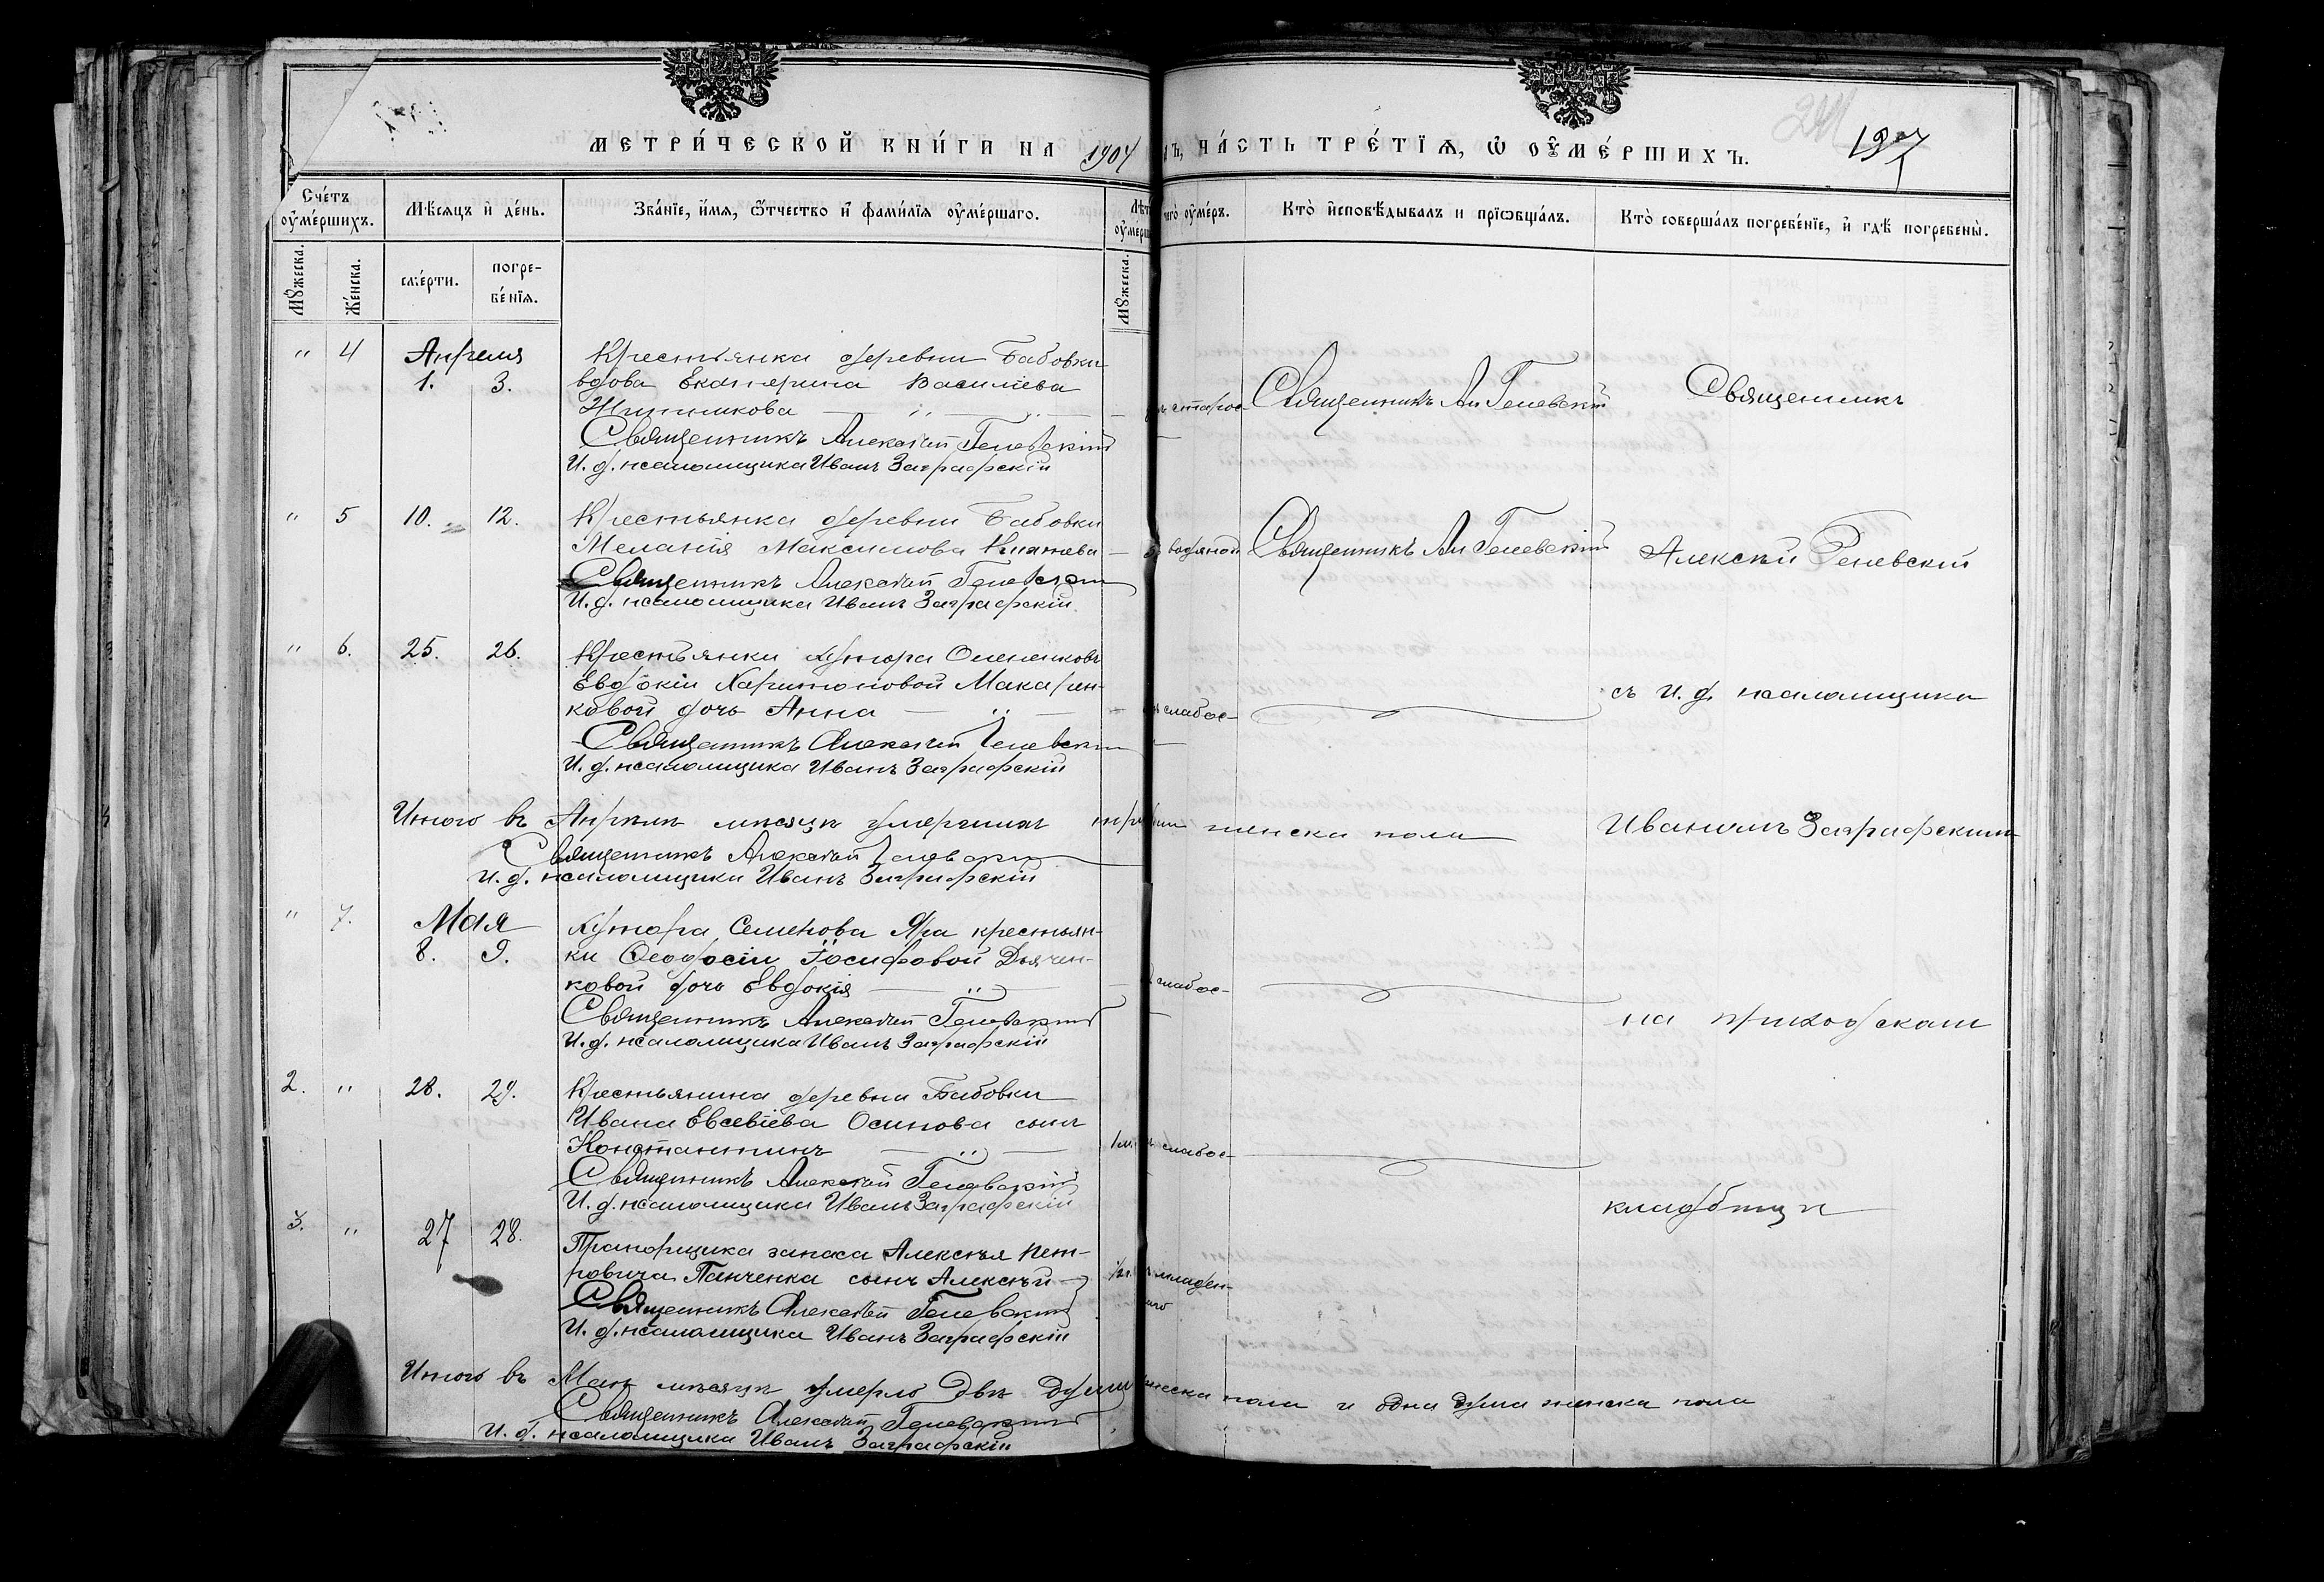 МЕТРИ́ЧЕСКОЙ КНИ́ГИ НА 1904
Ъ, ЧА́СТЬ ТРЕ́ТЇѦ, Ѡ ОУМЕ́РШИХЪ.
197
Сче́тъ оуме́ршихъ.
Мѣсяцъ и де́нь.
Зва́нїе, и́мя, ѻтчество и фами́лїя оуме́ршаго.
чего оуме́ръ.
Кто̀ исповѣ́дывалъ и прїѡбща́лъ.
Кто̀ соверша́лъ погребе́нїе, и гдѣ погребены̀.
Мꙋжеска.
Же́нска.
сме́рти.
погребе́нїя.
Мꙋжеска.
" 4 Апреля
1. 3.
Крестьянка деревни Бабовки
вдова Екатерина Васильева
Священникъ Алексѣй Геневскій
И. д. псаломщика Иванъ Заграфскій
старос-
Священникъ Ал Геневскій
Священникъ
" 5 10. 12.
Крестьянка деревни Бабовки
Меланія Максимова
Священникъ Алексѣй Геневскій
И. д. псаломщика Иванъ Заграфскій
водяной
Священникъ Ал Геневскій
Алексѣй Геневскій
" 6. 25. 26.
Крестьянки хутора
Евдокіи Харитоновой Макарен-
ковой дочь Анна
Священникъ Алексѣй Геневскій
И. д. псаломщика Иванъ Заграфскій
слабос-
съ и. д. псаломщика
Итого въ Апрѣлѣ мѣсяцѣ умершихъ женска пола
Священникъ Алексѣй Геневскій
И. д. псаломщика Иванъ Заграфскій
Иваномъ Заграфскимъ
" 7. Мая
8. 9.
Хутора Семенова Яра крестьян-
ки Ѳеодосіи Іосифовой Дьячен-
ковой дочь Евдокія
Священникъ Алексѣй Геневскій
И. д. псаломщика Иванъ Заграфскій
слабос-
на приходскомъ
2. " 28. 29.
Крестьянина деревни Бабовки
Ивана Евсевіева Осипова сынъ
Константинъ
Священникъ Алексѣй Геневскій
И. д. псаломщика Иванъ Заграфскій
слабос-
кладбищѣ
3. " 27 28.
Прапорщика запаса Алексѣя Пет-
ровича Панченка сынъ Алексѣй
Священникъ Алексѣй Геневскій
И. д. псаломщика Иванъ Заграфскій
младен-
Итого въ Маѣ мѣсяцѣ умерло двѣ души пола и одна душа женска пола
Священникъ Алексѣй Геневскій
И. д. псаломщика Иванъ Заграфскій